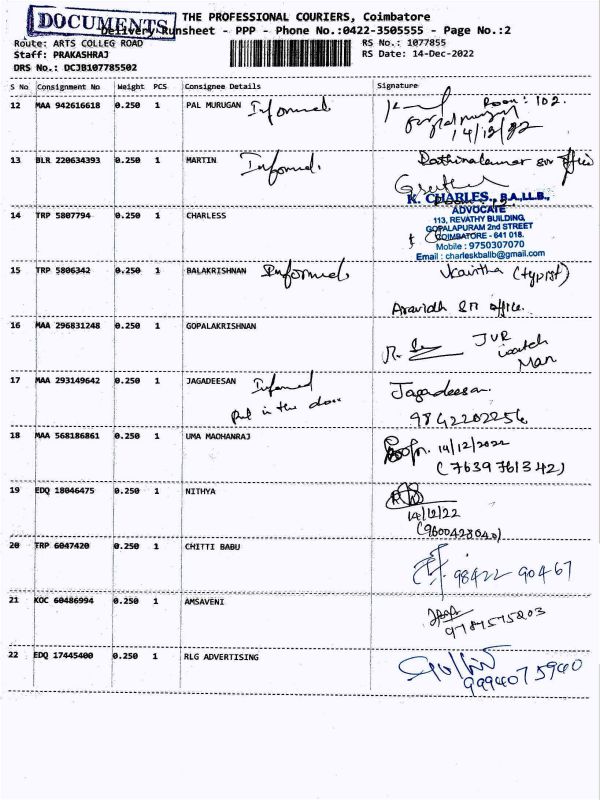 DOCUMENTS
THE PROFESSIONAL COURIERS, Coimbatore
Delivery Runsheet - PPP - Phone No.:0422-3505555 - Page No.:2
Route: ARTS COLLEG ROAD
RS No.: 1077855
Staff: PRAKASHRAJ
RS Date: 14-Dec-2022
DRS No.: DCJB107785502
S No Consignment No Weight PCS Consignee Details Signature
12 MAA 942616618 0.250 1 PAL MURUGAN Informed
Room: 102.
14/12/22
13 BLR 220634393 0.250 1 MARTIN Informed.
K. CHARLES., B.A.,LL.B.,
ADVOCATE
113, REVATHY BUILDING,
GOPALAPURAM 2nd STREET
COIMBATORE - 641 018.
Mobile : 9750307070
Email : charleskballb@gmail.com
14 TRP 5807794 0.250 1 CHARLESS
15 TRP 5806342 0.250 1 BALAKRISHNAN Informed
Kavitha (typist)
office.
16 MAA 296831248 0.250 1 GOPALAKRISHNAN
JVR
watch
Man
17 MAA 293149642 0.250 1 JAGADEESAN Informed
Put in the door
Jagadeesan.
9842202256
18 MAA 568186861 0.250 1 UMA MADHANRAJ
14/12/2022
(7639761342)
19 EDQ 18046475 0.250 1 NITHYA
14/12/22
(9600428040)
20 TRP 6047420 0.250 1 CHITTI BABU
98422 90467
21 KOC 60486994 0.250 1 AMSAVENI
9787575203
22 EDQ 17445400 0.250 1 RLG ADVERTISING
9994075940